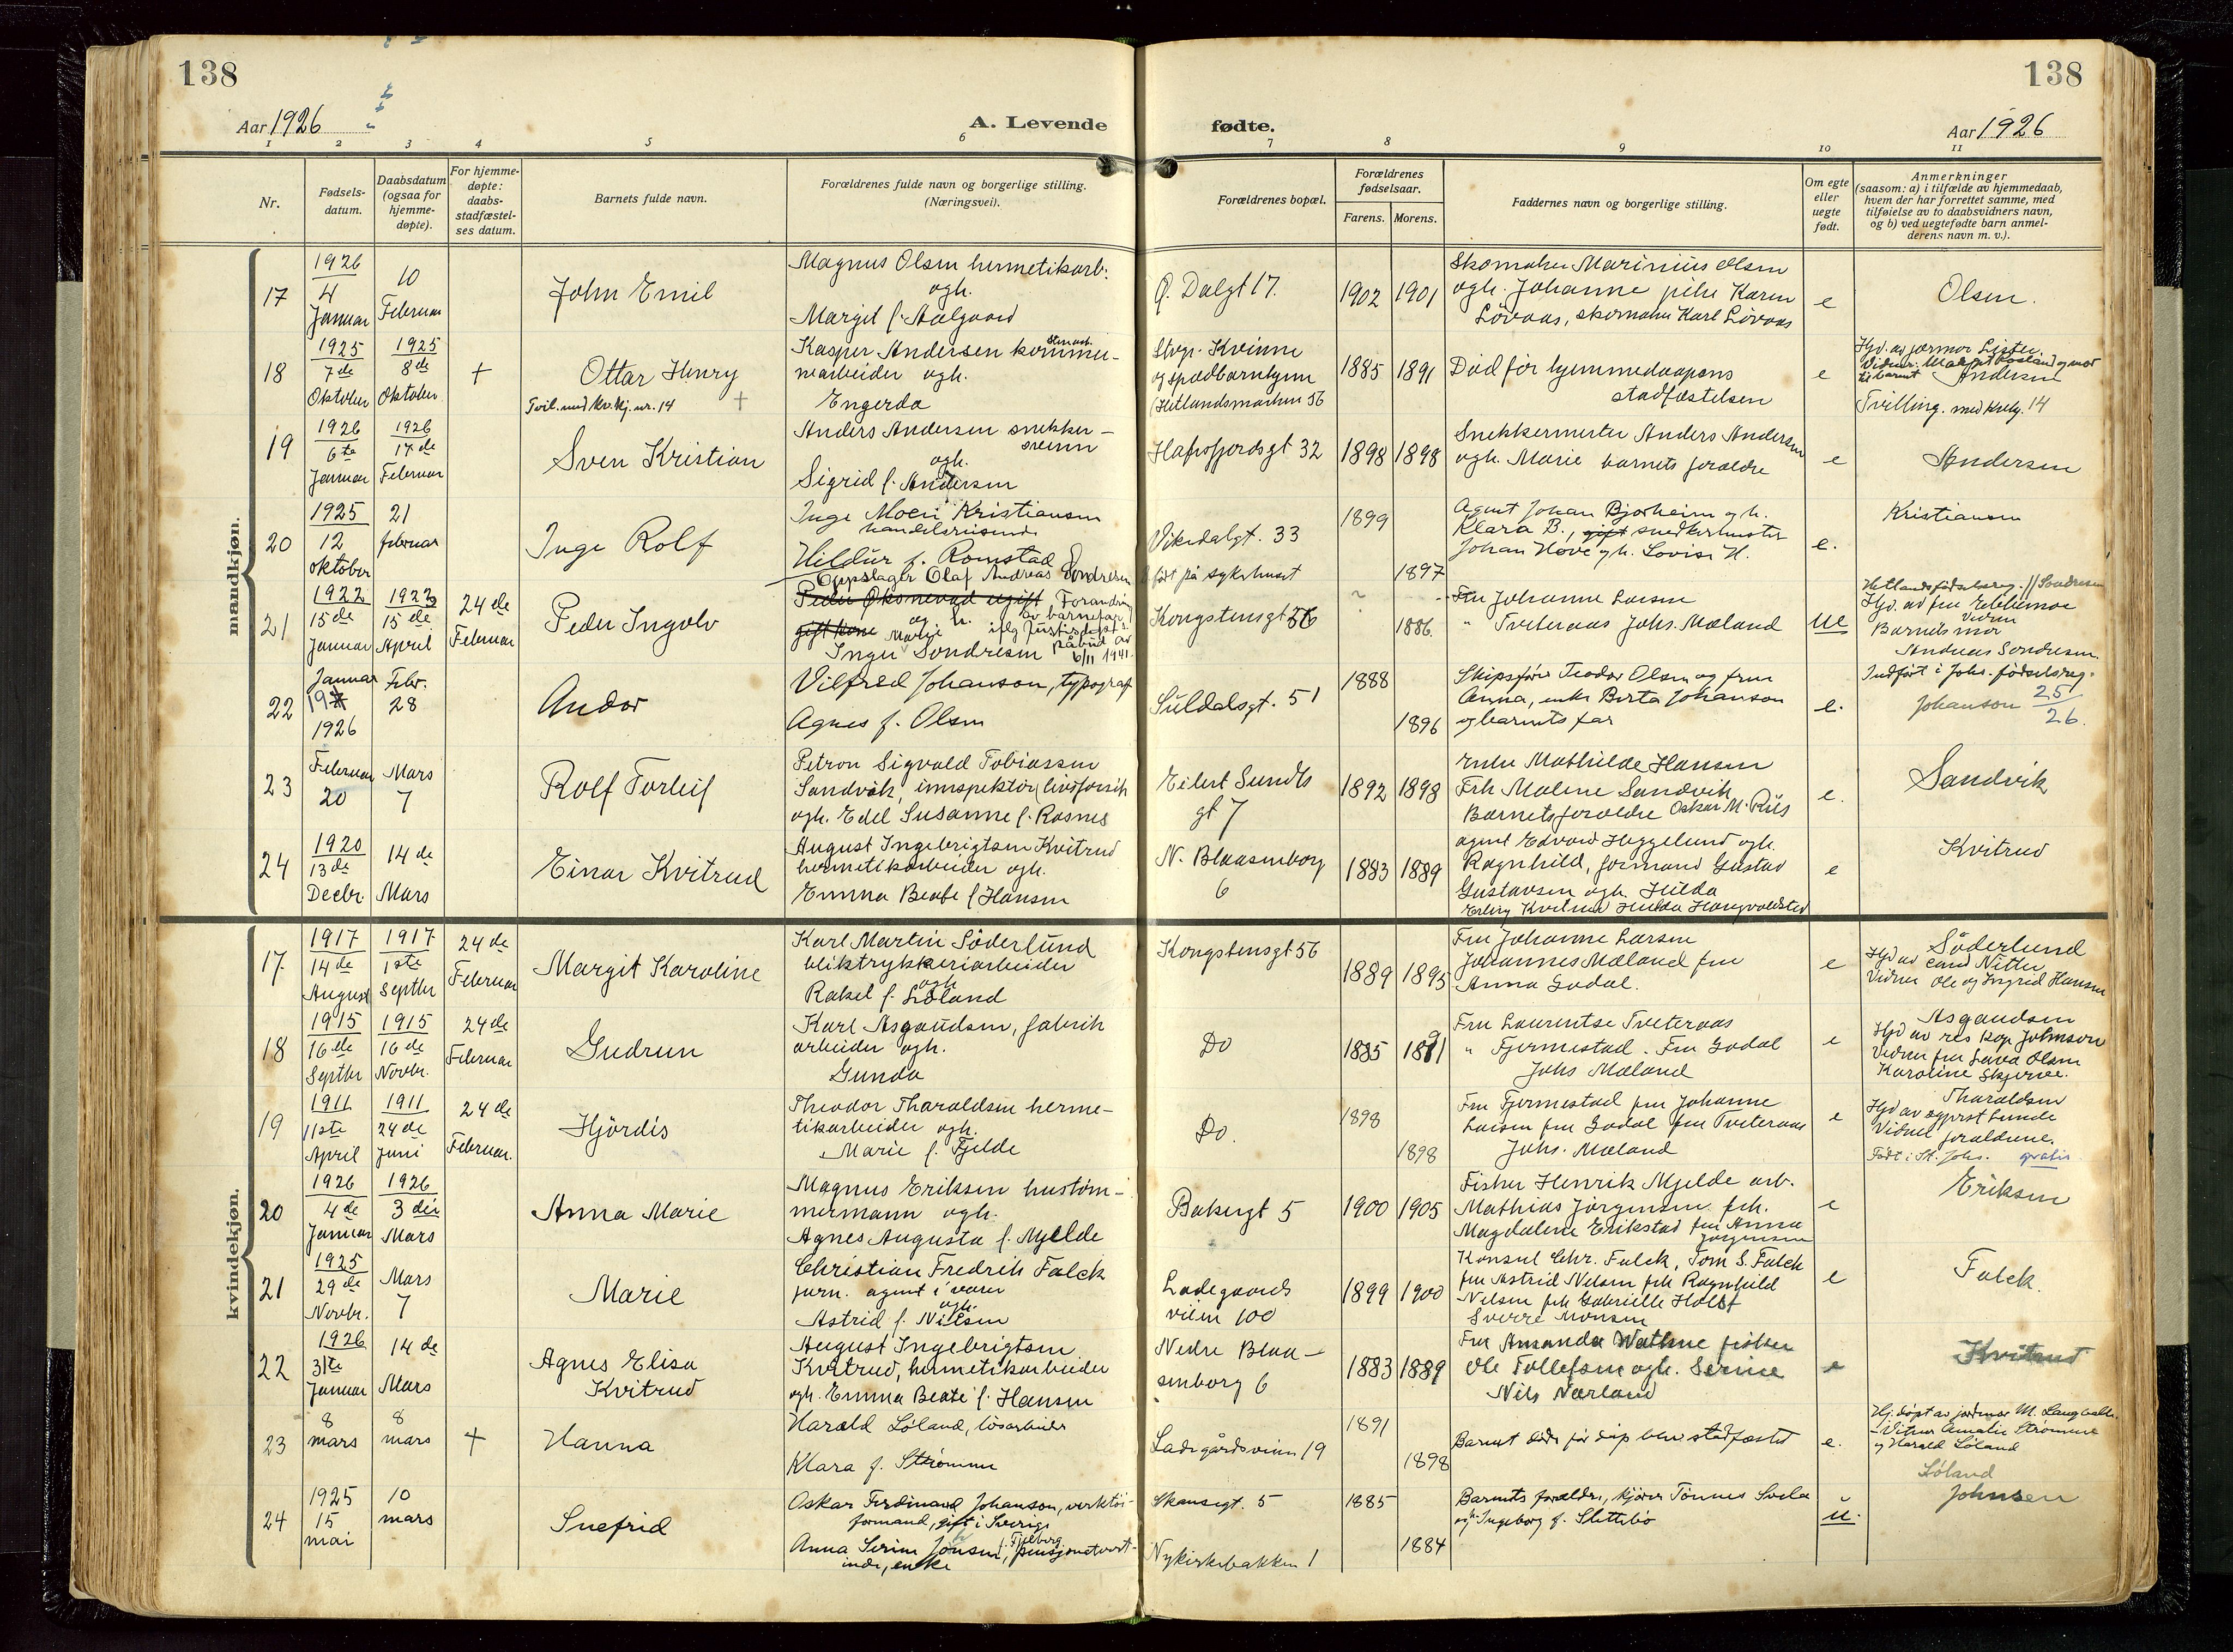 138
138
Aar 1926
A. Levende
fødte.
Aar 1926
1 2 3 4 5 6 7 8 9 10 11
Nr.
Fødsels-
datum.
Daabsdatum
(ogsaa for
hjemme-
døpte).
For hjemme-
døpte:
daabs-
stadfæstel-
ses datum.
Barnets fulde navn.
Forældrenes fulde navn og borgerlige stilling.
(Næringsvei).
Forældrenes bopæl.
Forældrenes
fødselsaar.
Farens. Morens.
Faddernes navn og borgerlige stilling.
Om egte
eller
uegte
født.
Anmerkninger
(saasom: a) i tilfælde av hjemmedaab,
hvem der har forrettet samme, med
tilføielse av to daabsvidners navn,
og b) ved uegtefødte barn anmel-
derens navn m. v.).
mandkjøn.
17
1926
4
Januar
10
Februar
John Emil
Magnus Olsen hermetikarb.
ogh.
Margit f. Aalgaard
Ø. Dalgt 17.
1902 1901
Skomaker Marinius Olsen
ogh. Johanne pike Karen
Lövaas, skomaker Karl Lövaas
e
Olsen.
18
1925
7de
Oktober
1925
8de
Oktober
+
Ottar Henry
Tvil. med kv.kj. nr. 14 +
Kasper Andersen kommu-
nearbeider ogh.
Engerda
Stvgr. Kvinne
og spædbarnhjem
(Hetlandsmarken 56
1885 1891
Död för hjemmedaapens
stadfæstelsen
e
Andersen
Tvilling. med kvkj. 14
19
1926
6te
Januar
1926
17de
Februar
Sven Kristian
Anders Andersen snekker-
svenn
ogh.
Sigrid f. Andersen
Hafrsfjordsgt 32
1898 1898
Snekkermester Anders Andersen
ogh. Marie barnets forældre
e
Andersen
20
1925
12
oktober
21
februar
Inge Rolf
Inge Moen Kristiansen
handelsreisende
Hildur f. Romstad
Vikedalgt. 33
født på sykehuset
1899
1897
Agent Johan Bjorheim og h.
Klara B., gift snedkermester
Johan Hove og h. Lovise H.
e.
Kristiansen
21
1922
15de
Januar
1922
15de
April
24de
Februar
Peder Ingolv
Oppslager Olaf Andreas Sondresen
Peder Oksnevad ugift, Forandring
gift kone og h. av barnefar
Malje iflg Justisdept.s
Inger Sondresen påbud av
6/11 1941.
Kongstensgt 56
1886.
Fru Johanne Larsen
" Tveteraas Johs. Mæland
ue
Hetlandsfødselsreg. // Sondresen
Hjd. av fru Ebbismoe
Vidner
Barnets mor
Andreas Sondresen.
22
Januar
19
1926
Febr.
28
Andor
Vilfred Johanson, typograf
Agnes f. Olsen
Suldalsgt. 51
1888
1896
Skipsfører Teodor Olsen og frue
Anna, enke Berta Johanson
og barnets far
e.
Indført i Johs. fødselsreg.
Johanson 25/26.
23
Februar
20
Mars
7
Rolf Torleif
Petron Sigvald Tobiassen
Sandvik, innspektör livsforsik
ogh. Edel Susanne f. Rosnes
Eilert Sundts
gt 7
1892 1898
Enke Mathilde Hansen
Frk Maline Sandvik
Barnets forældre Oskar M. Riis
e.
Sandvik
24
1920
13de
Decbr.
14de
Mars
Einar Kvitrud
August Ingebrigtsen Kvitrud
hermetikarbeider ogh.
Emma Beate f Hansen
N. Blaasenborg
6
1883 1889
agent Edvard Heggelund ogh.
Ragnhild, formand Gustav
Gustavsen ogh Hilda
Erling Kvitrud Hulda Haugvaldstad
e
Kvitrud
kvindekjøn.
17.
1917
14de
August
1917
1ste
Septbr
24de
Februar
Margit Karoline
Karl Martin Söderlund
bliktrykkeriarbeider
ogh
Rakel f. Löland
Kongstensgt 56
1889 1895
Fru Johanne Larsen
Johannes Mæland fru
Anna Godal.
e
Söderlund
Hjd av cand Nitter
Vidner Ole og Ingrid Hansen
18
1915
16de
Septbr
1915
16de
Novbr.
24de
Februar
Gudrun
Karl Asgaudsen, fabrik
arbeider ogh.
Gunda
Do
1885 1891
Fru Laurentse Tveteraas
" Tjermestad. Fru Godal
Johs Mæland
e
Asgaudsen
Hjd av res kap Johnson
Vidner fru Lava Olsen
Karoline Skjeree.
19
1911
11ste
April
1911
24de
Juni
24de
Februar.
Hjördis
Theodor Tharaldsen herme-
tikarbeider ogh.
Marie f. Fjelde
Do.
1898
1898
Fru Tjermestad fru Johanne
Larsen fru Godal fru Tveteraas
Johs. Mæland
e
Tharaldsen
Hjd av sogprst Lunde
Vidner forældrene.
Født i St. Johs. gratis
20
1926
4de
Januar
1926
3die
Mars
Anna Marie
Magnus Eriksen hustöm-
mermann ogh.
Agnes Augusta f. Mjelde
Bakergt 5
1900 1905
Fisker Henrik Mjelde arb.
Mathias Jörgensen frk.
Magdalene Erikstad fru Anna
Jörgensen
e
Eriksen
21
1925
29de
Novbr.
Mars
7
Marie
Christian Fredrik Falck
jurn. agent i varer
ogh.
Astrid f. Nielsen
Ladegaards
veien 100
1899 1900
Konsul Chr. Falck, Tom S. Falck
fru Astrid Nelsen frk Ragnhild
Nelsen frk Gabrielle Holst
Sverre Monsen
e
Falck.
22
1926
31te
Januar
14de
Mars
Agnes Elisa
Kvitrud
August Ingebrigtsen
Kvitrud, hermetikarbeider
ogh. Emma Beate f. Hansen
Nedre Blaa-
senborg 6
1883 1889
Fru Amanda Wathne fisker
Ole Tollefsen ogh. Serine
Nils Nærland
e
Kvitrud
23
8
mars
8
mars
+
Hanna
Harald Løland, løsarbeider
Klara f. Strømme
Ladegårdsveien 19
1891
1898
Barnet døde før dåp blev stadfæstet
e.
Hj. døpt av jordmor M. Langvatn
- Vitner Amalie Strømme
og Harald Løland
Løland
24
1925
15
mai
10
mars
Snefrid
Oskar Ferdinand Johanson, verktøi-
formand, gift i Sverige
Anna Serine Jonsen, f. Fjelberg, pensjonatvert-
inde, enke
Skansegt. 5
Nykirkebakken 1
1885
1884
Barnets forældre, kjører Tønnes Svela
og h. Ingeborg f. Slettebø
u.
Johnsen